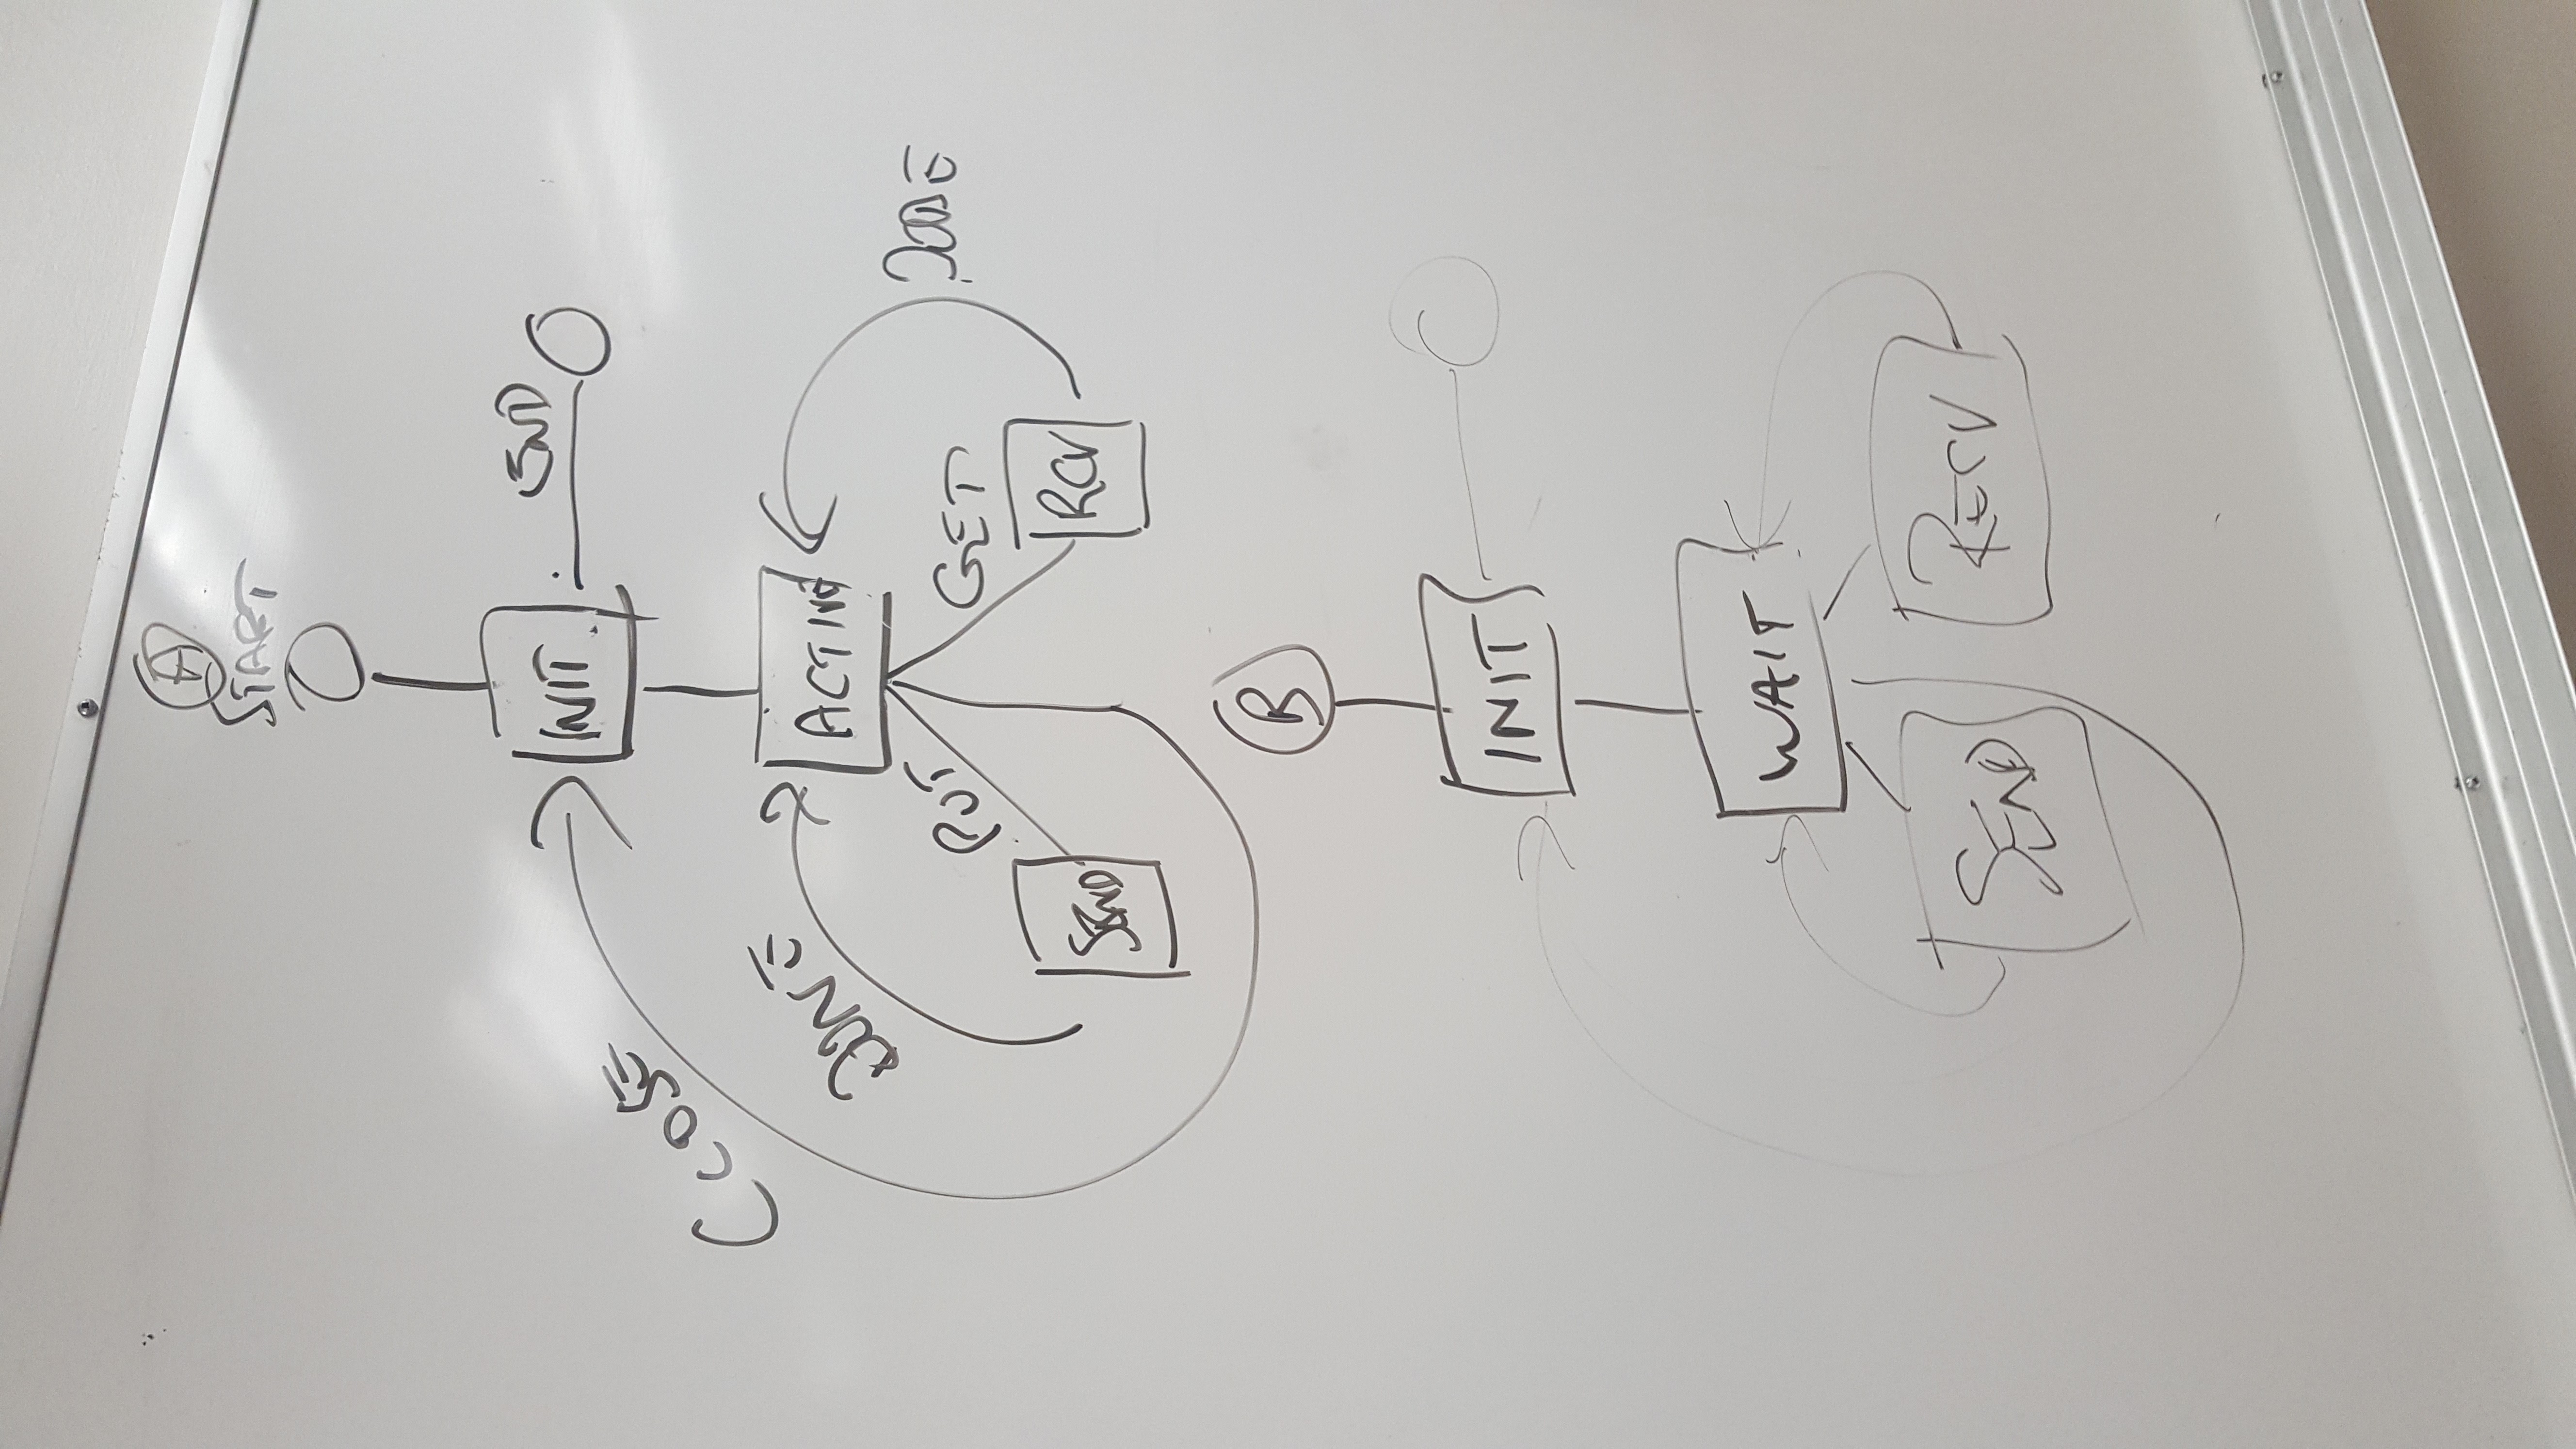 A
START
INIT
END
CLOSE
ACTIVE
DONE
PUT
GET
DONE
SEND
RCV
B
INIT
WAIT
SEND
RECV